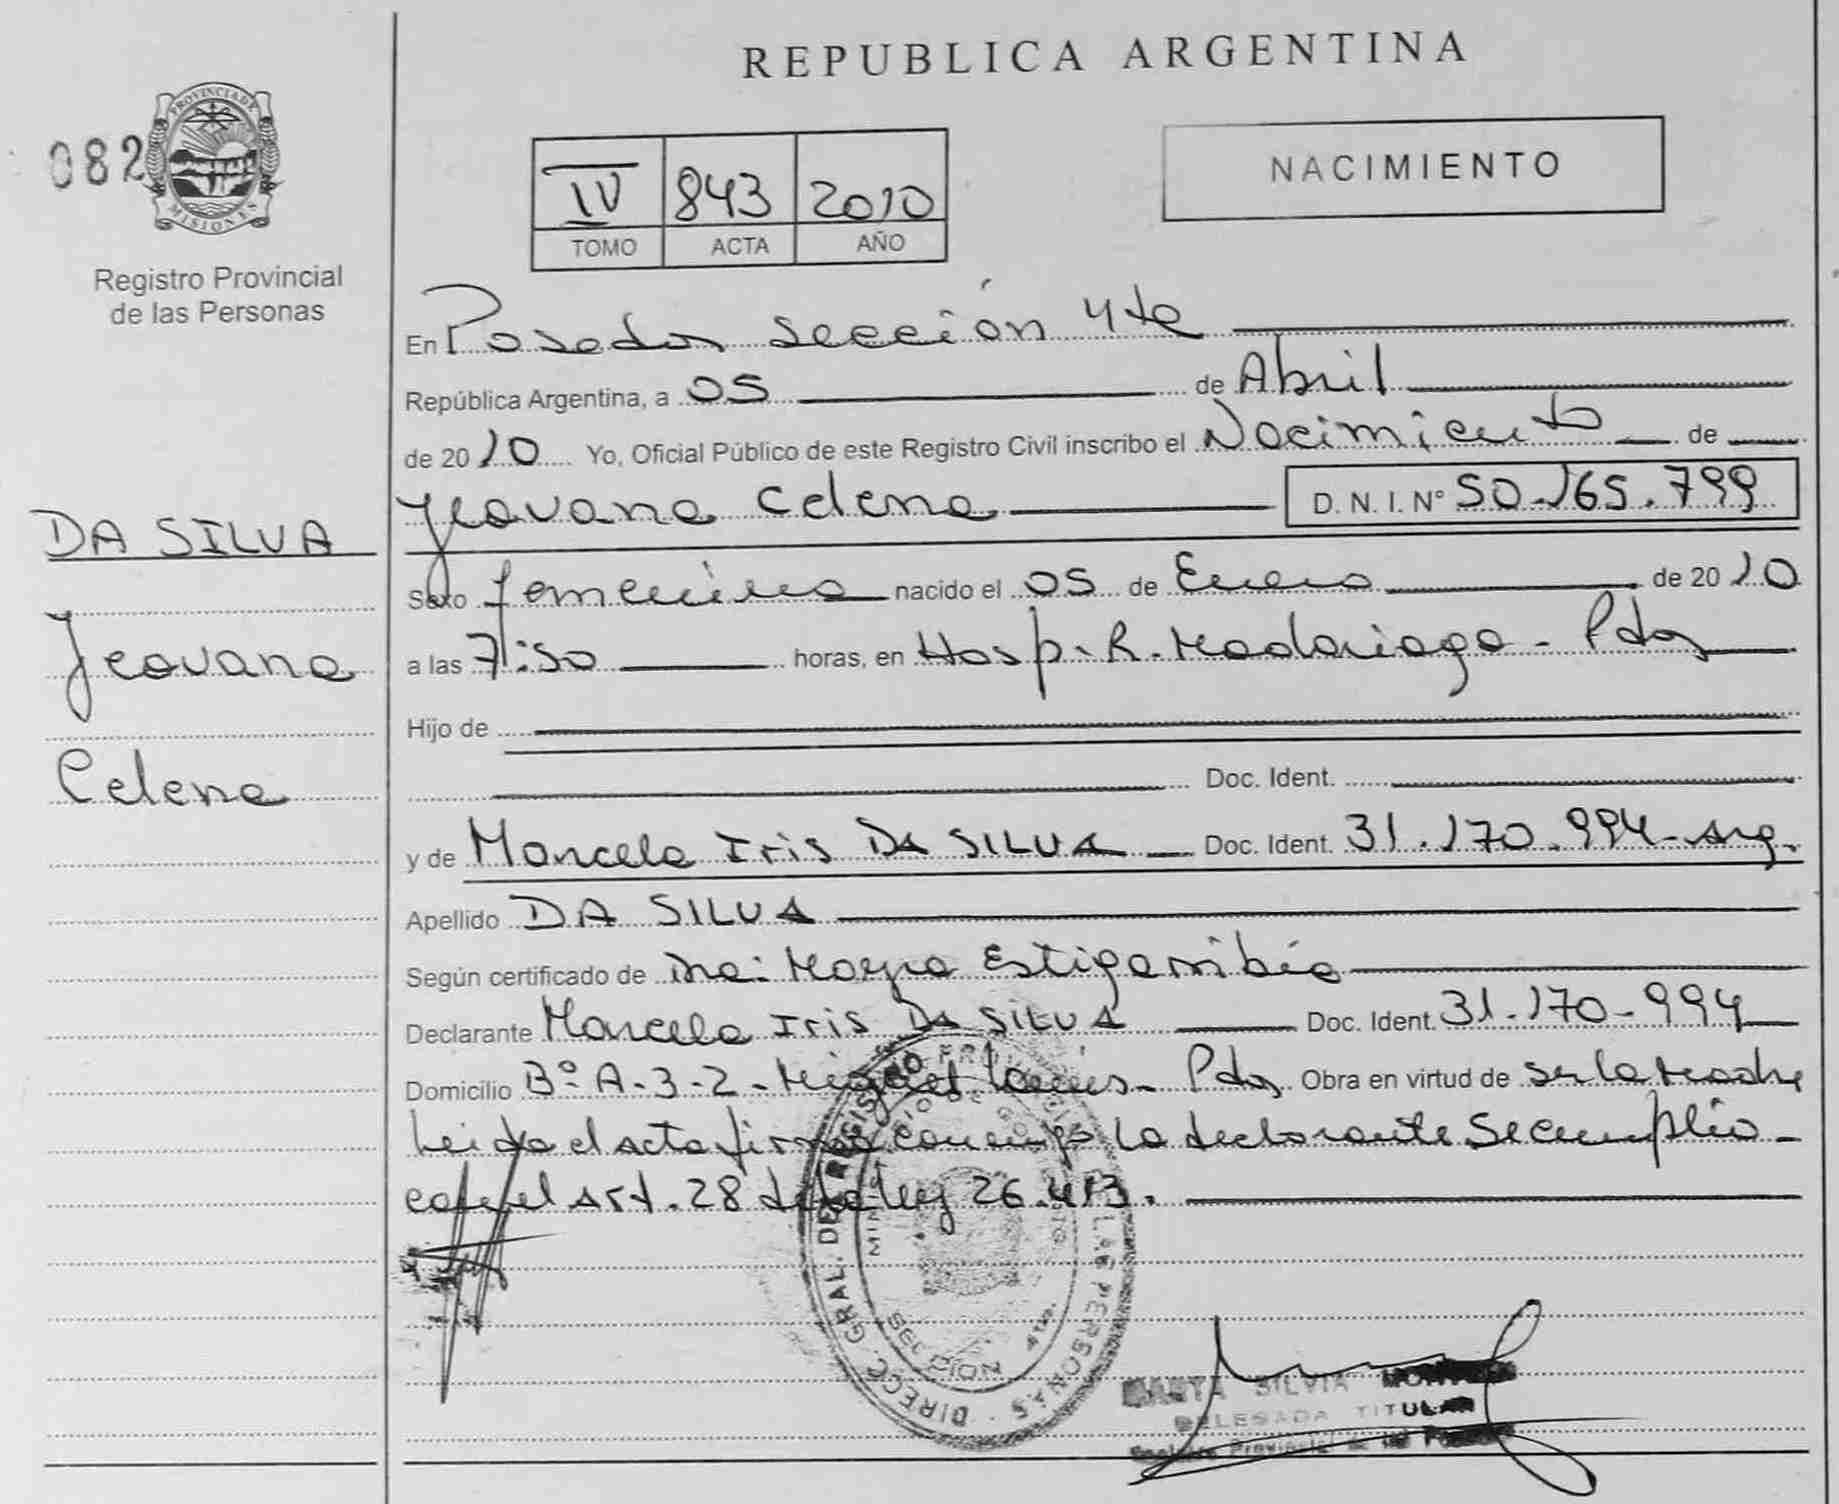 REPUBLICA ARGENTINA
082
PROVINCIA DE MISIONES
Registro Provincial
de las Personas
IV 843 2010
TOMO ACTA AÑO
NACIMIENTO
En Posadas sección 4ta
República Argentina, a 05 de Abril
de 2010 Yo, Oficial Público de este Registro Civil inscribo el Nacimiento de
Jeovana Celena D.N.I. N° 50.165.799
DA SILVA
Jeovana
Celena
Sexo femenino nacido el 05 de Enero de 2010
a las 7:50 horas, en Hosp. R. Madariaga - Pdas
Hijo de
Doc. Ident.
y de Marcela Iris DA SILVA Doc. Ident. 31.170.994-Arg.
Apellido DA SILVA
Según certificado de Dra: Mayra Estigarribia
Declarante Marcela Iris DA SILVA Doc. Ident. 31.170.994
Domicilio B° A-3-2- Miguel Pdas Obra en virtud de ser la Madre
Leida el acta firma conmigo la declarante Se cumplio
con el Art. 28 de la ley 26.413.
DIREC. GRAL. DEL REGISTRO DE LAS PERSONAS
SECCION 4ta.
MARTA SILVIA
DELEGADA TITULAR
Registro Provincial de las Personas